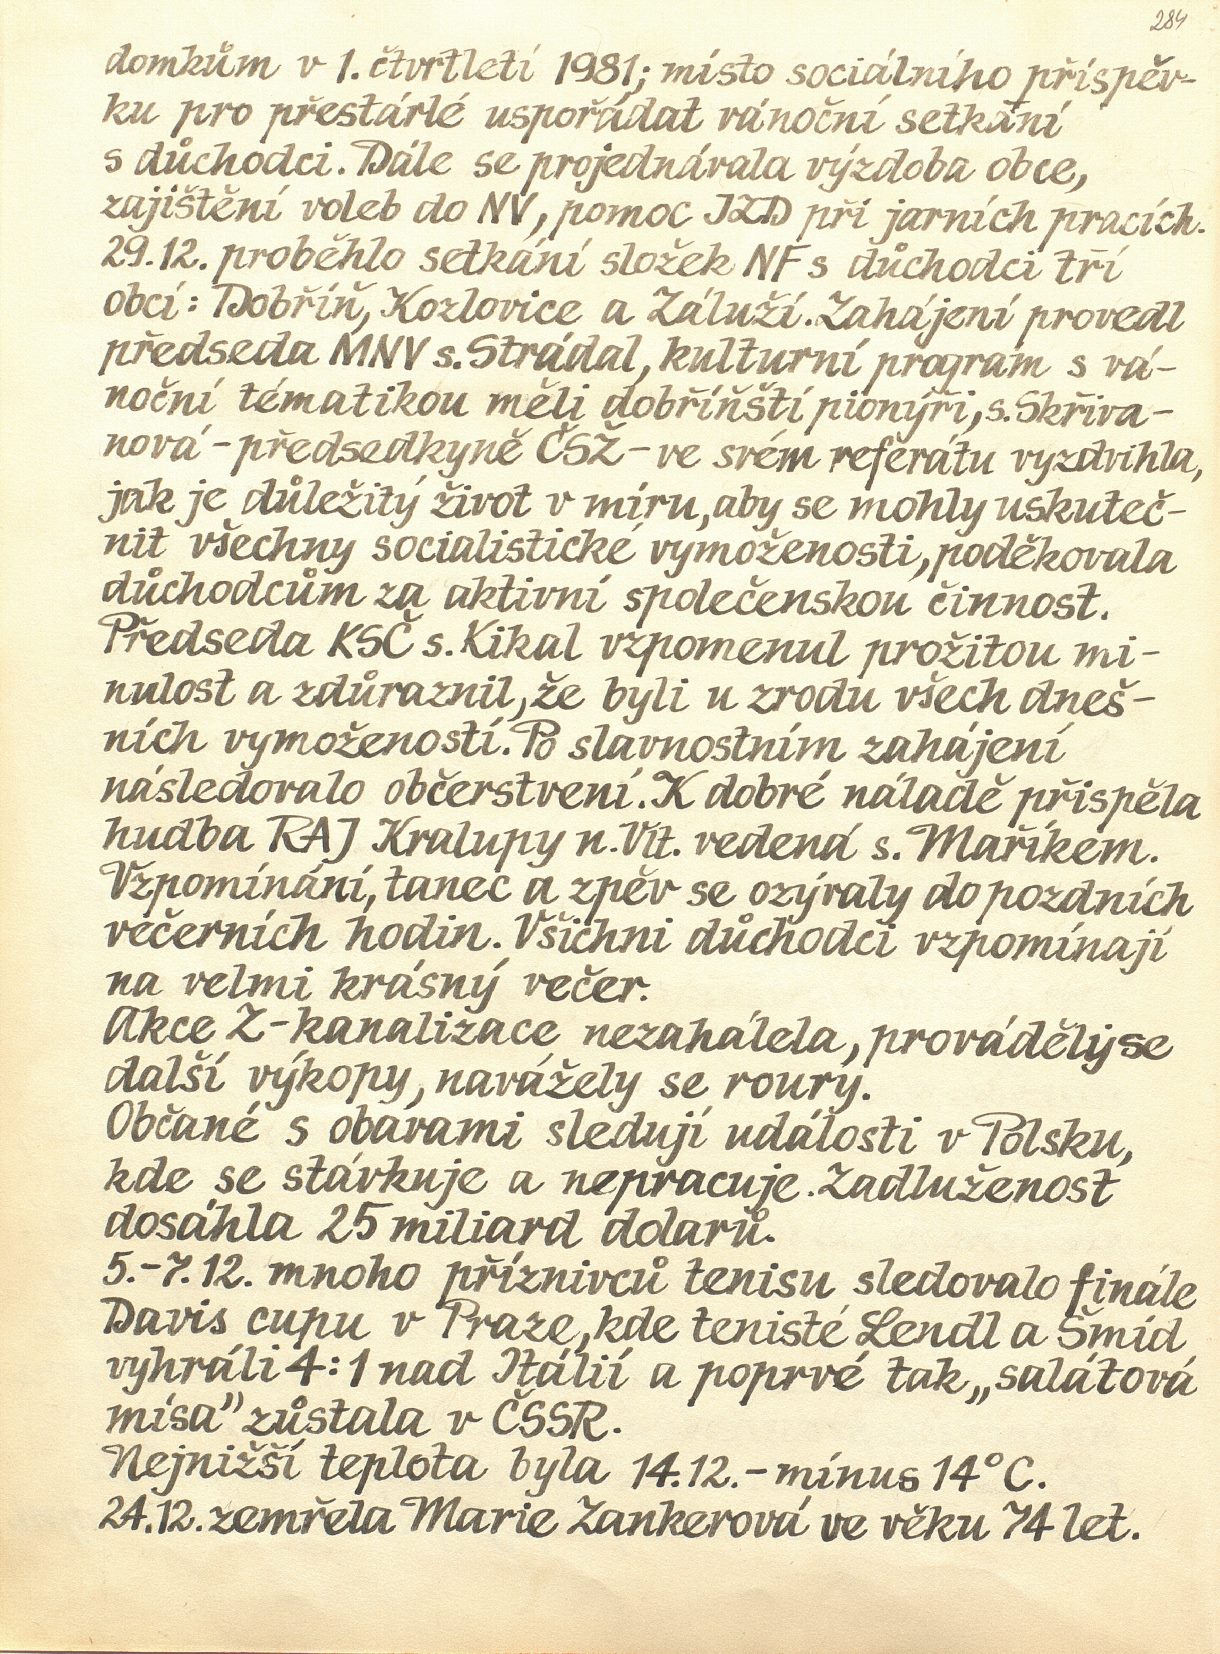 284
domkům v 1. čtvrtletí 1981; místo sociálního příspěv-
ku pro přestárlé uspořádat vánoční setkání
s důchodci. Dále se projednávala výzdoba obce,
zajištění voleb do NV, pomoc JZD při jarních pracích.
29.12. proběhlo setkání složek NF s důchodci tří
obcí: Dobříň, Kozlovice a Záluží. Zahájení provedl
předseda MNV s. Strádal, kulturní program s vá-
noční tématikou měli dobříňští pionýři, s. Skřiva-
nová - předsedkyně ČSŽ - ve svém referátu vyzdvihla,
jak je důležitý život v míru, aby se mohly uskuteč-
nit všechny socialistické vymoženosti, poděkovala
důchodcům za aktivní společenskou činnost.
Předseda KSČ s. Kikal vzpomenul prožitou mi-
nulost a zdůraznil, že byli u zrodu všech dneš-
ních vymožeností. Po slavnostním zahájení
následovalo občerstvení. K dobré náladě přispěla
hudba RAJ Kralupy n. Vlt. vedená s. Maříkem.
Vzpomínání, tanec a zpěv se ozývaly do pozdních
večerních hodin. Všichni důchodci vzpomínají
na velmi krásný večer.
Akce Z - kanalizace nezahálela, prováděly se
další výkopy, navážely se roury.
Občané s obavami sledují události v Polsku,
kde se stávkuje a nepracuje. Zadluženost
dosáhla 25 miliard dolarů.
5.-7.12. mnoho příznivců tenisu sledovalo finále
Davis cupu v Praze, kde tenisté Lendl a Šmíd
vyhráli 4:1 nad Itálií a poprvé tak „salátová
mísa" zůstala v ČSSR.
Nejnižší teplota byla 14.12. - mínus 14°C.
24.12. zemřela Marie Zankerová ve věku 74 let.